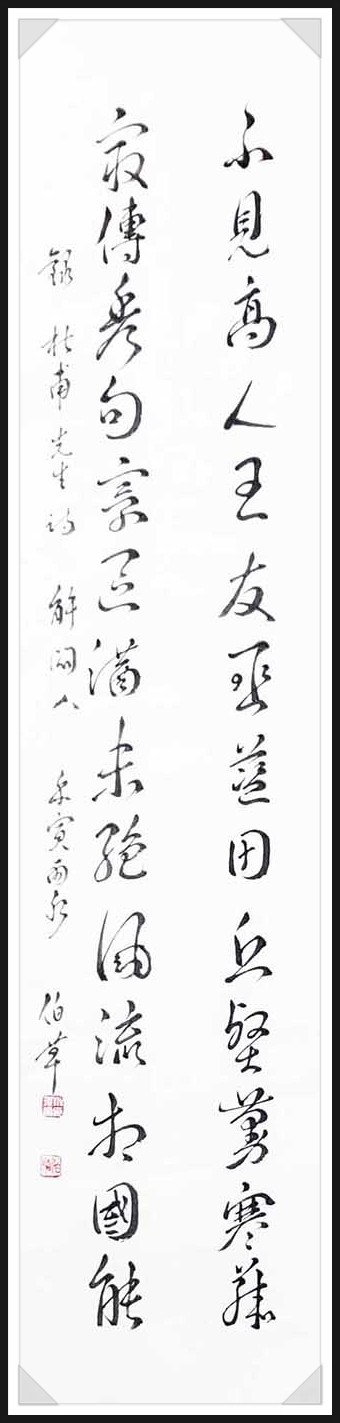 不見高人王友丞藍田丘壑蔓寒藤
最傳秀句寰區滿未絕風流相國能
錄 杜甫先生詩 解悶八 壬寅雨水 伯華